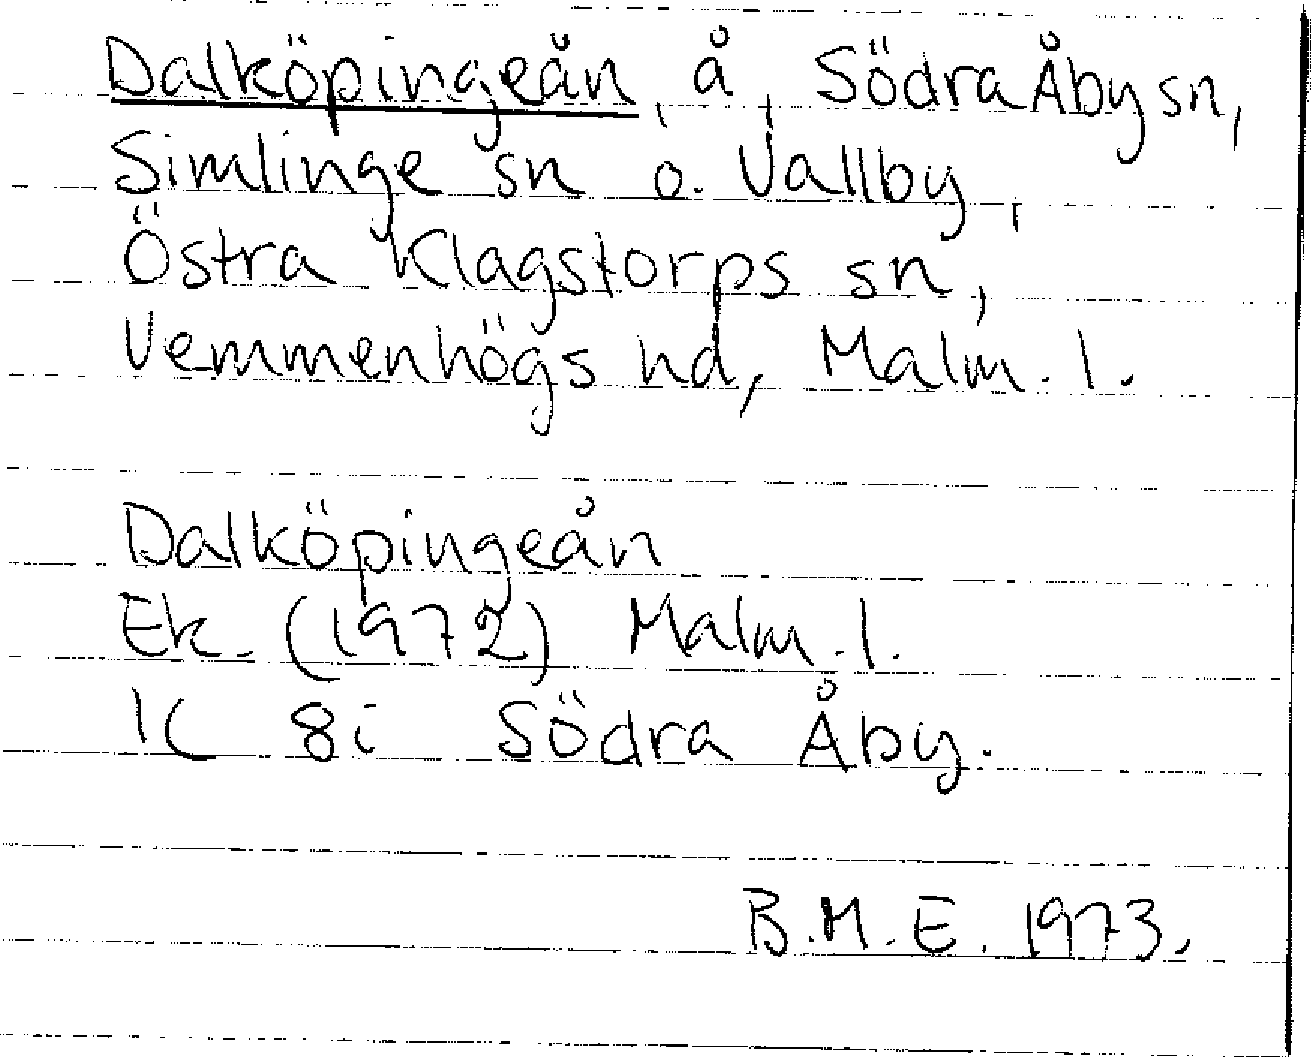 Dalköpingeån, å, Södra Åby sn,
Simlinge sn o. Vallby,
Östra Klagstorps sn,
Vemmenhögs hd, Malm. l.
Dalköpingeån
Ek. (1972) Malm. l.
1C 8i Södra Åby.
B.M.E. 1973.